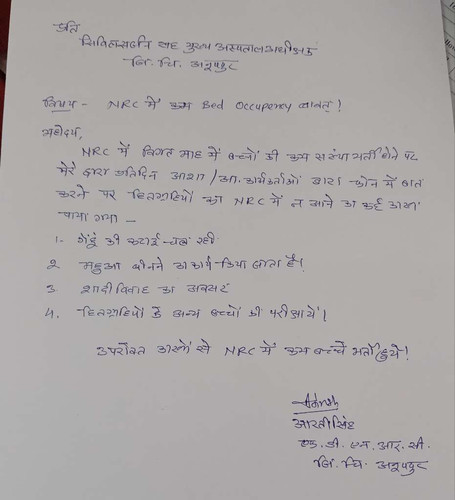 प्रति
सिविल सर्जन सह मुख्य अस्पताल अधीक्षक
जि. चि. अनूपपुर
विषय - NRC में कम Bed Occupency बाबत्!
महोदय,
NRC में विगत माह में बच्चों की कम संख्या भर्ती होने पर
मेरे द्वारा प्रतिदिन आशा/आ. कार्यकर्ताओं द्वारा फोन में बात
करने पर हितग्राहियों का NRC में न आने का कई कारण
पाया गया -
1. गेहूं की कटाई चल रही
2 महुआ बीनने का कार्य किया जाता है।
3 शादी विवाह का अवसर
4. हितग्राहियों के अन्य बच्चों की परीक्षायें।
उपरोक्त कारणों से NRC में कम बच्चें भर्ती हुये!
आरती सिंह
एफ. डी. एन. आर. सी.
जि. चि. अनूपपुर